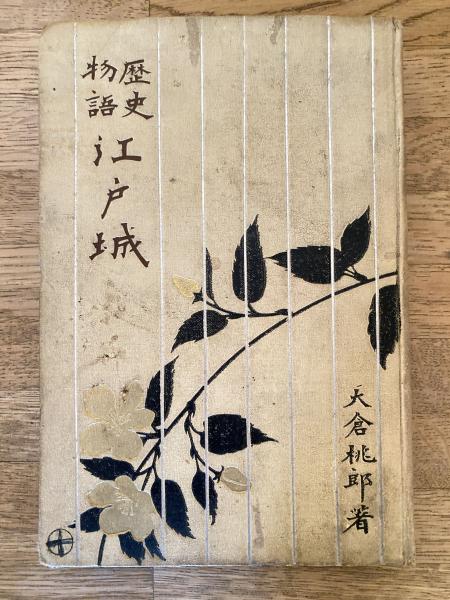 歴史
物語
江戸城
大倉桃郎著